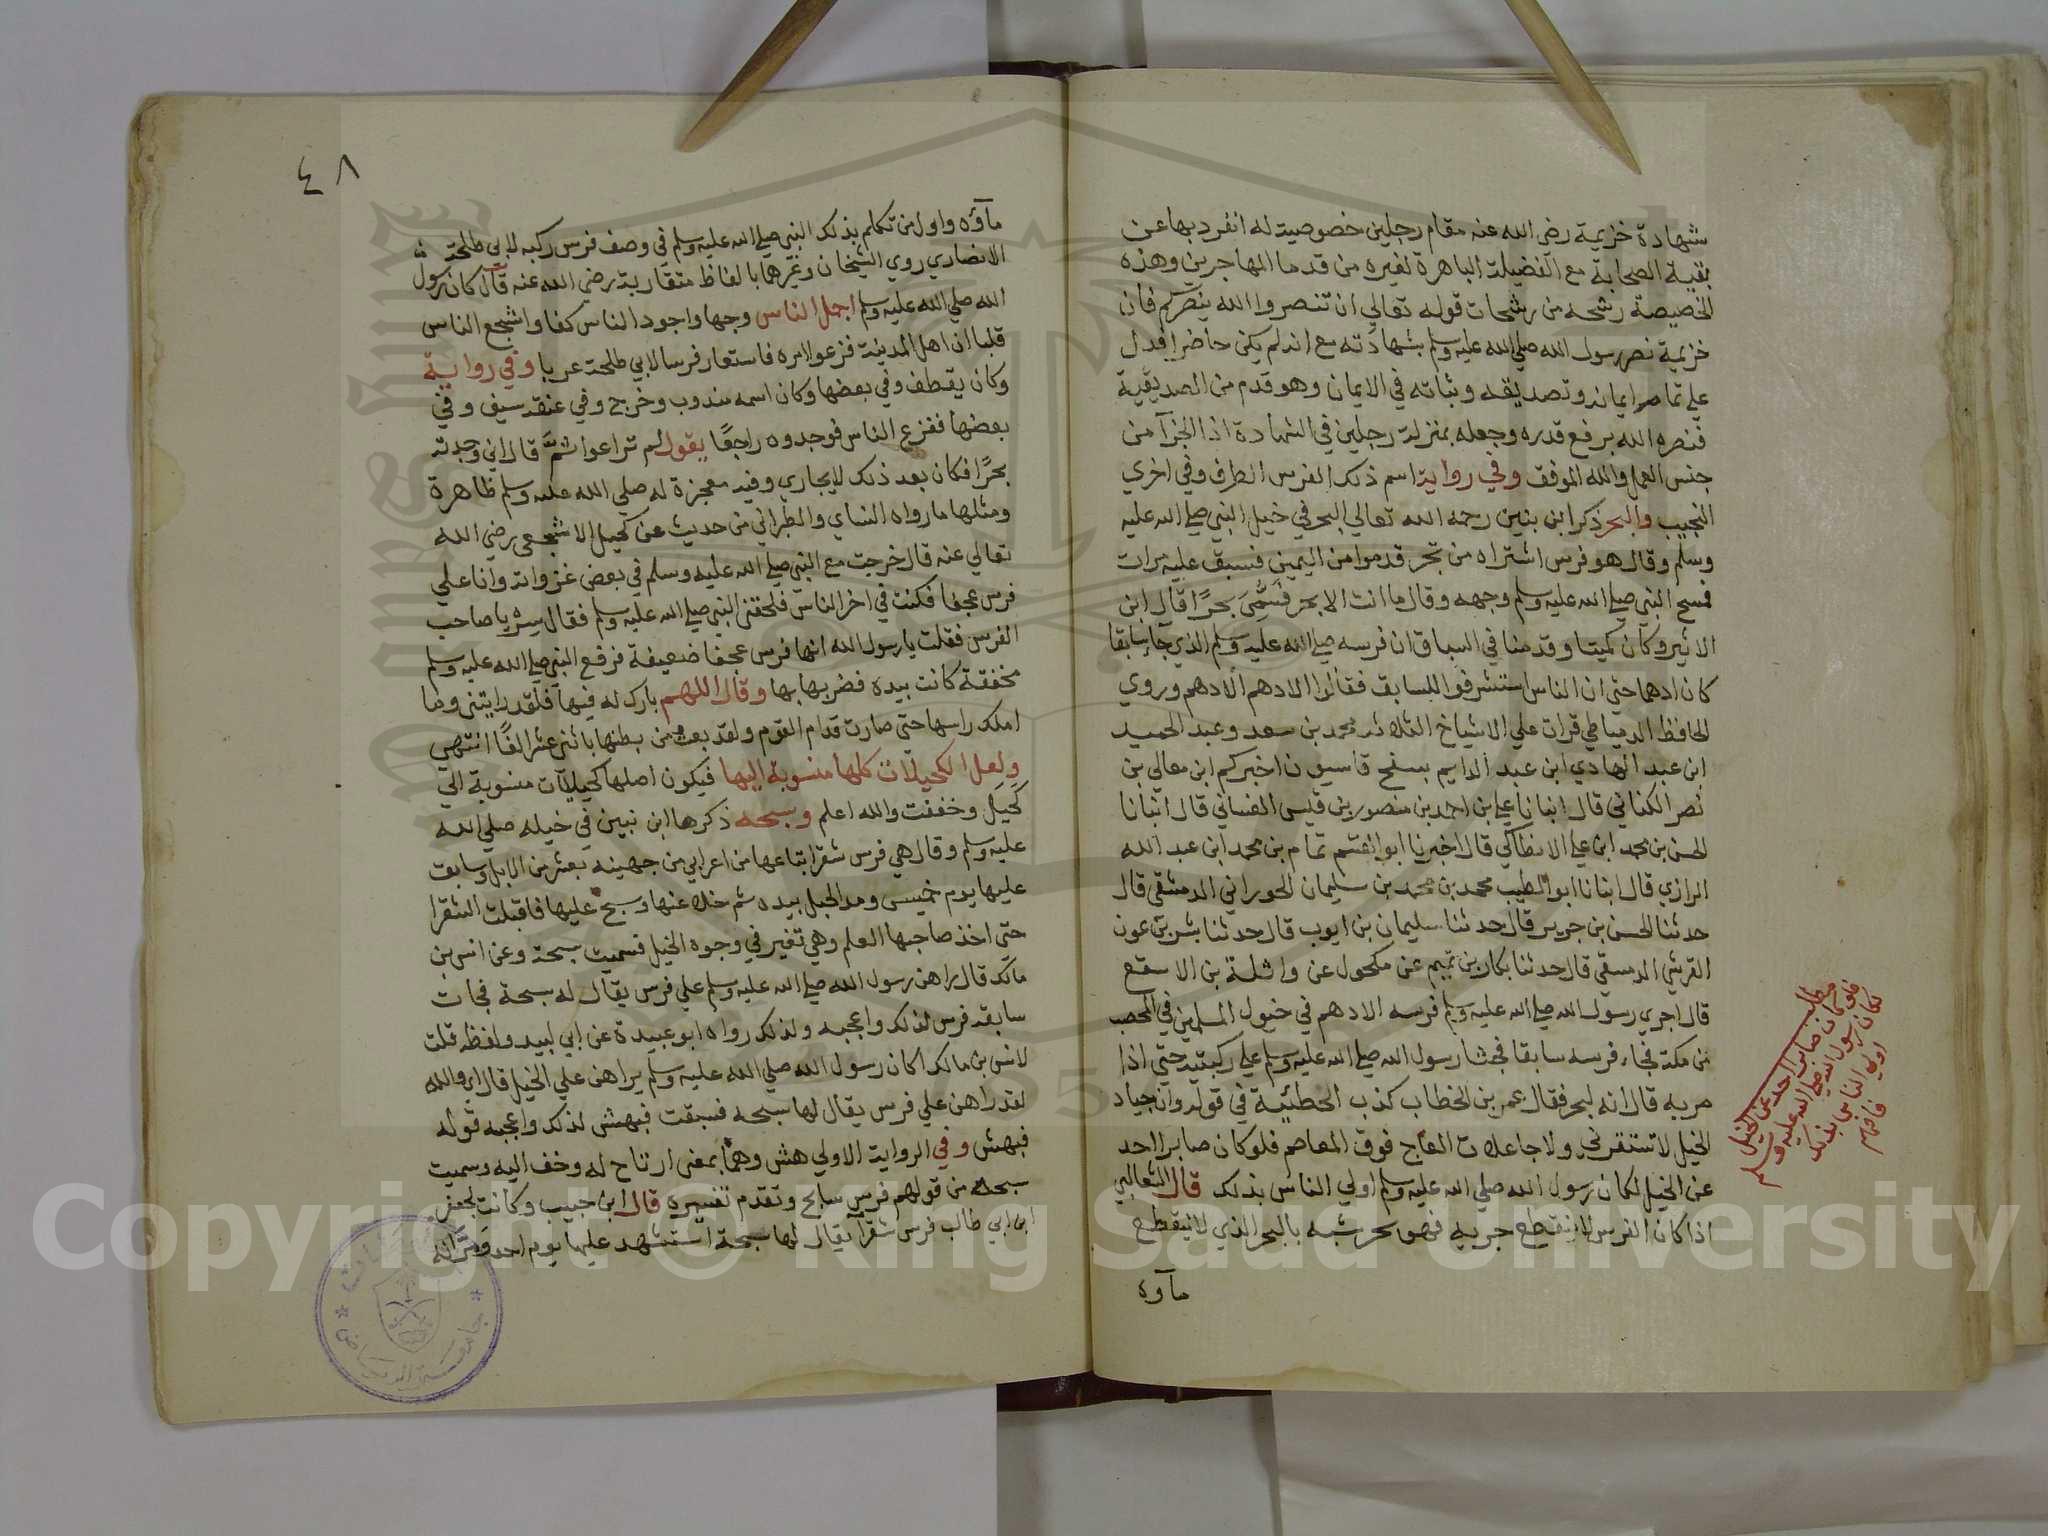 شهادة خزيمة رضى الله عنه مقام رجلين خصوصية له انفرد بها عن
بقية الصحابة مع الفضيلة الباهرة لغيره من قدما المهاجرين وهذه
الخصيصة رشحه من رشحات قوله تعالي ان تنصروا الله ينصركم فان
خزيمة نصر رسول الله صلي الله عليه وسلم بشهادته مع انه لم يكن حاضرا فدل
علي تمام ايمانه وتصديقه وثباته في الايمان وهو قدم من الصديقية
فنصره الله برفع قدره وجعله بمنزلة رجلين في الشهادة اذ الجزآ من
جنس العمل والله الموفق وفي رواية اسم ذلك الفرس الطرف وفي اخري
النجيب والبحر ذكر ابن بنين رحمه الله تعالي البحر في خيل النبي صلي الله عليه
وسلم وقال هو فرس اشتراه من تجر قدموا من اليمن فسبق عليه مرات
فمسح النبي صلي الله عليه وسلم وجهه وقال ما انت الا بحر فسمي بحرا قال ابن
الاثير وكان كميتا وقدمنا في السباق ان فرسه صلي الله عليه وسلم الذي جآ سابقا
كان ادهما حتي ان الناس استشرفوا للسابق فقالوا الادهم الادهم وروي
الحافظ الدمياطي قرات علي الاشياخ الثلاثه محمد بن سعد وعبد الحميد
ابن عبد الهادي ابن عبد الدايم بسفح قاسيون اخبركم ابن معالي بن
نصر الكناني قال انبانا علي بن احمد بن منصور بن قيس الغساني قال انبانا
الحسن بن محمد ابن علي الانطاكي قال اخبرنا ابو القسم تمام بن محمد ابن عبد الله
الرازي قال انبانا ابو الطيب محمد بن محمد بن سليمان الحوراني الدمشقي قال
حدثنا الحسن بن جرير قال حدثنا سليمان بن ايوب قال حدثنا بشر بن عون
القرشي الدمسقي قال حدثنا بكار بن تميم عن مكحول عن واثلة بن الاسقع
قال اجري رسول الله صلي الله عليه وسلم فرسه الادهم في خيول المسلمين في المحصب
من مكة فجاء فرسه سابقا فجثا رسول الله صلي الله عليه وسلم علي ركبتيه حتي اذا
مر به قال انه لبحر فقال عمر بن الخطاب كذب الحطيئية في قوله وان جياد
الخيل لا تستفزني ولا جاعلات العاج فوق المعاصم فلو كان صابرا احد
عن الخيل لكان رسول الله صلي الله عليه وسلم اولي الناس بذلك قال الثعالبي
اذا كان الفرس لا ينقطع جريه فهو بحر شبه بالبحر الذي لا ينقطع
مآوه
مطلب
فلو كان صابرا احد عن الخيل
لكان رسول الله صلي الله عليه وسلم
اولي الناس بذلك
فافهم
٤٨
مآؤه واول من تكلم بذلك النبي صلي الله عليه وسلم في وصف فرس ركبه لابي طلحة
الانصاري روي الشيخان وغيرهما بالفاظ متقاربة رضي الله عنه قال كان رسول
الله صلي الله عليه وسلم اجمل الناس وجها واجود الناس كفا واشجع الناس
قلبا ان اهل المدينة فزعوا مره فاستعار فرسا لابي طلحة عريا وفي رواية
وكان يقطف وفي بعضها وكان اسمه مندوب وخرج وفي عنقه سيف وفي
بعضها ففزع الناس فوجدوه راجعا يقول لم تراعوا ثم قال اني وجدته
بحرا فكان بعد ذلك لا يجاري وفيه معجزة له صلي الله عليه وسلم ظاهرة
ومثلها ما رواه النساي والطبراني من حديث عن كحيل الاشجعى رضى الله
تعالي عنه قال خرجت مع النبي صلي الله عليه وسلم في بعض غزواته وانا علي
فرس عجفا فكنت في اخر الناس فلحقني النبي صلي الله عليه وسلم فقال سر يا صاحب
الفرس فقلت يا رسول الله انها فرس عجفا ضعيفة فرفع النبي صلي الله عليه وسلم
مخفقة كانت بيده فضربها بها وقال اللهم بارك له فيها فلقد رايتني وما
املك راسها حتي صارت قدام القوم ولقد بعت من بطنها باثني عشر الفا انتهي
ولعل الكحيلات كلها منسوبة اليها فيكون اصلها كحيلات منسوبة الي
كحيل وخففت والله اعلم وسبحه ذكرها ابن نبين في خيله صلي الله
عليه وسلم وقال هي فرس شقرا ابتاعها من اعرابي من جهينه بعشر من الابل وسابق
عليها يوم خميس ومد الحبل بيده ثم خلا عنها وسبح عليها فاقبلت الشقرا
حتي اخذ صاحبها العلم وهي تغير في وجوه الخيل فسميت سبحة وعن انس بن
مالك قال راهن رسول الله صلي الله عليه وسلم علي فرس يقال له سبحة فجات
سابقه فرس لذلك واعجبه ولذلك رواه ابو عبيدة عن ابي لبيد ولفظه قلت
لانس بن مالك اكان رسول الله صلي الله عليه وسلم يراهن علي الخيل قال اي والله
لقد راهن علي فرس يقال لها سبحه فسبقت فبهش لذلك واعجبه قوله
فبهش وفي الرواية الاولي هش وهما بمعني ارتاح له وخف اليه وسميت
سبحة من قولهم فرس سابح وتقدم تفسيره قال ابن حبيب وكانت لجعفر
ابن ابي طالب فرس شقرآ يقال لها سبحة استشهد عليها يوم احد
جامعة الرياض
Copyright © King Saud University